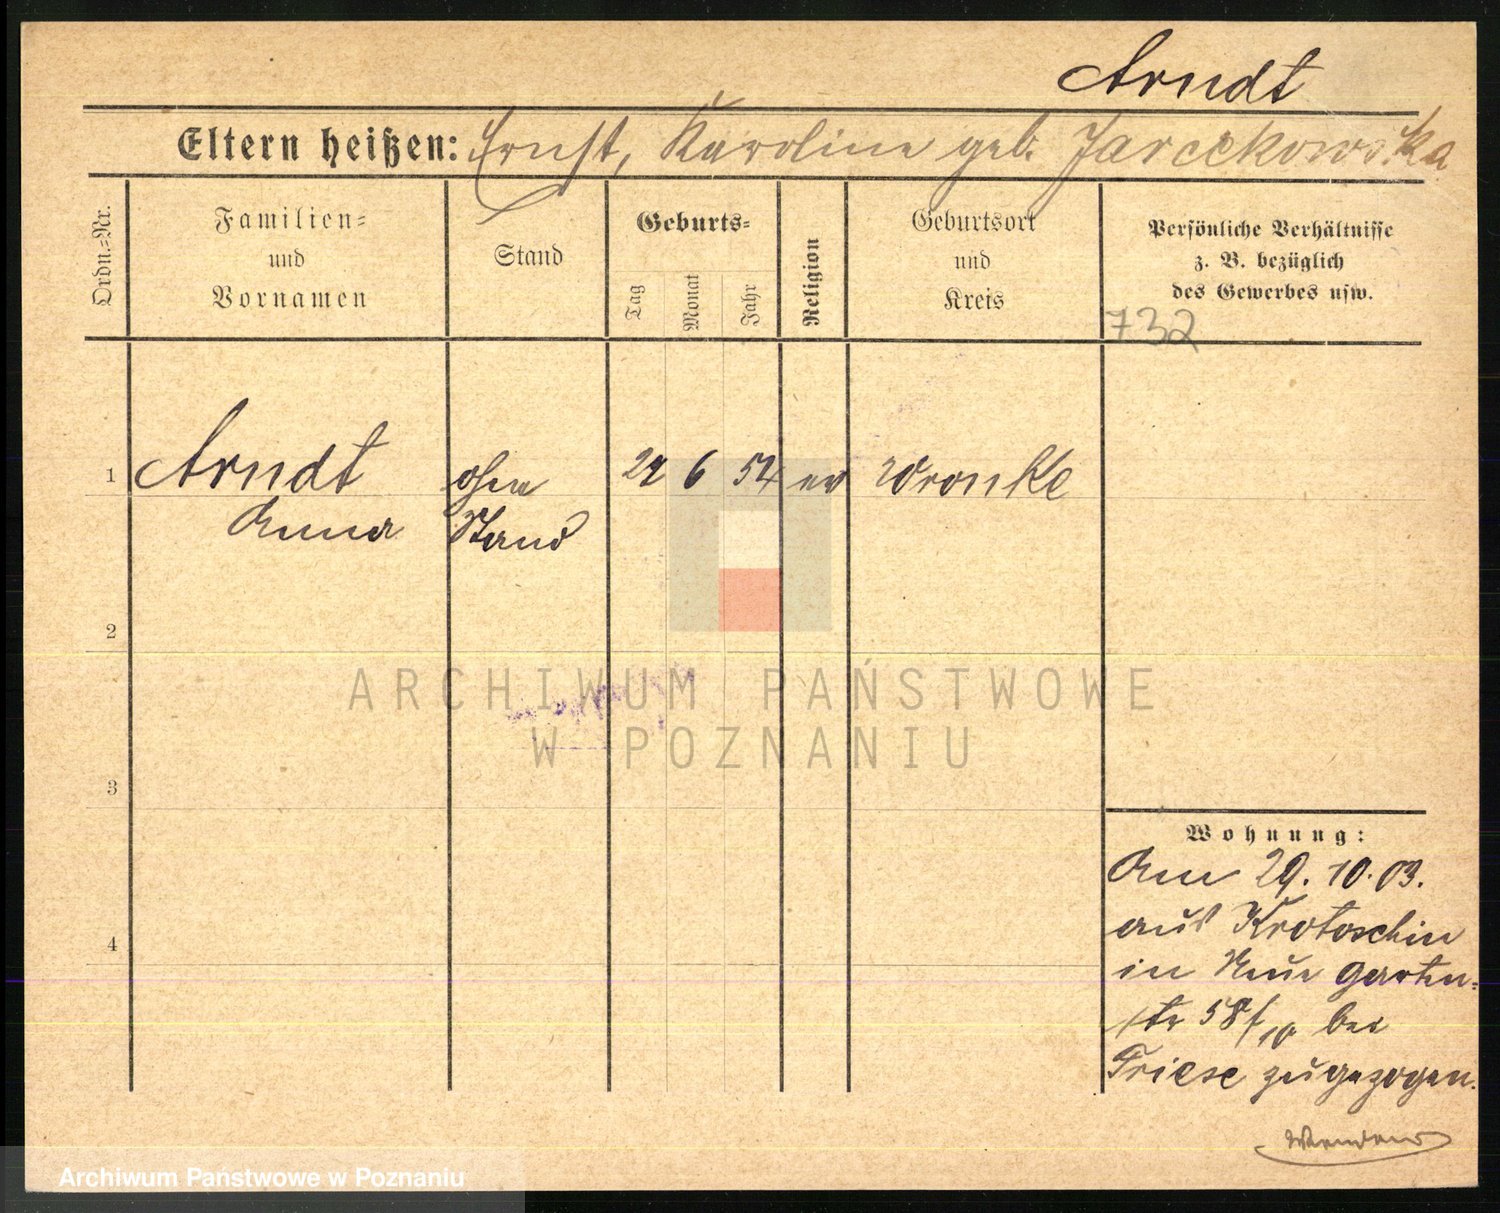 Arndt
Eltern heißen: Ernst, Karoline geb. Jarczkowska
Ordn.=Nr.
Familien=
und
Vornamen
Stand
Geburts=
Tag
Monat
Jahr
Religion
Geburtsort
und
Kreis
Persönliche Verhältnisse
z. B. bezüglich
des Gewerbes usw.
732
1 Arndt ohne 6 54 ev Wronke
Anna Stand
2
3
4
ARCHIWUM PAŃSTWOWE
W POZNANIU
Wohnung:
Am 29. 10. 03.
aus Krotoschin
in Neue Garten=
str 58 bei
Friese zugezogen.
Archiwum Państwowe w Poznaniu